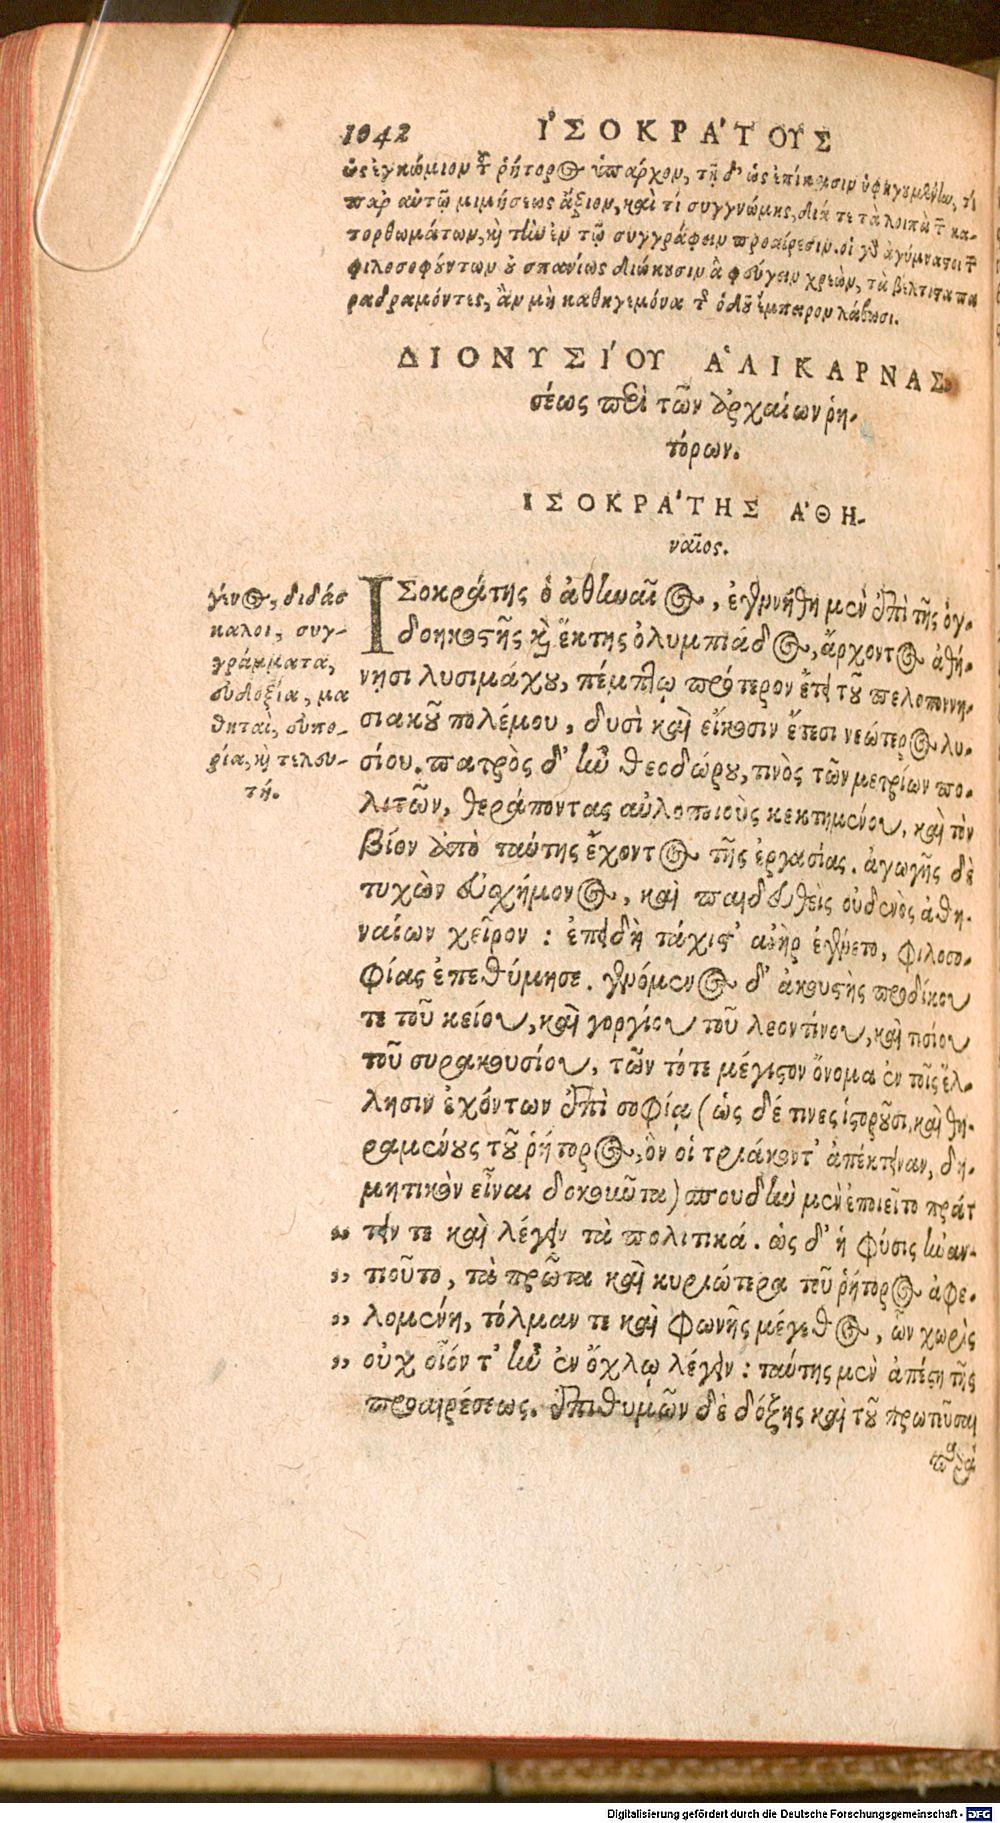 1042 ἸΣΟΚΡΆΤΟΥΣ
ὡς ἐγκώμιον τοῦ ῥήτορος ὑπάρχον, τῇ δ' ὡς ἐπίκρισιν ὑφηγουμένην, τί
παρ' αὐτῷ μιμήσεως ἄξιον, καὶ τί συγγνώμης, διά τε τὰ λοιπὰ τῶν κα-
τορθωμάτων, καὶ τὴν ἐν τῷ συγγράφειν προαίρεσιν. οἱ γὰρ ἀγύμναστοι τῶν
φιλοσοφούντων οὐ σπανίως διώκουσιν ἃ φεύγειν χρεὼν, τὰ βέλτιστα πα
ραδραμόντες, ἂν μὴ καθηγεμόνα τῆς ὁδοῦ ἔμπειρον λάβωσι.
ΔΙΟΝΥΣΊΟΥ ἉΛΙΚΑΡΝΑΣ-
σέως περὶ τῶν ἀρχαίων ῥη-
τόρων.
ΙΣΟΚΡΆΤΗΣ ἈΘΗ-
ναῖος.
ἸΣοκράτης ὁ ἀθηναῖος, ἐγεννήθη μὲν ἐπὶ τῆς ὀγ-
δοηκοστῆς καὶ ἕκτης ὀλυμπιάδος, ἄρχοντος ἀθή-
νησι λυσιμάχου, πέμπτῳ πρότερον ἔτει τοῦ πελοποννη-
σιακοῦ πολέμου, δυσὶ καὶ εἴκοσιν ἔτεσι νεώτερος λυ-
σίου. πατρὸς δ' ἦν θεοδώρου, τινὸς τῶν μετρίων πο-
λιτῶν, θεράποντας αὐλοποιοὺς κεκτημένου, καὶ τὸν
βίον ἀπὸ ταύτης ἔχοντος τῆς ἐργασίας. ἀγωγῆς δὲ
τυχὼν εὐσχήμονος, καὶ παιδευθεὶς οὐδενὸς ἀθη-
ναίων χεῖρον: ἐπειδὴ τάχιστ' ἀνὴρ ἐγένετο, φιλοσο-
φίας ἐπεθύμησε. γενόμενος δ' ἀκουστὴς προδίκου
τε τοῦ κείου, καὶ γοργίου τοῦ λεοντίνου, καὶ τισίου
τοῦ συρακουσίου, τῶν τότε μέγιστον ὄνομα ἐν τοῖς ἕλ-
λησιν ἐχόντων ἐπὶ σοφίᾳ (ὡς δέ τινες ἱστοροῦσι, καὶ θη-
ραμένους τοῦ ῥήτορος, ὃν οἱ τριάκοντ' ἀπέκτειναν, δη-
μοτικὸν εἶναι δοκοῦντα) σπουδὴν μὲν ἐποιεῖτο πράτ
„ τειν τε καὶ λέγειν τὰ πολιτικά. ὡς δ' ἡ φύσις ἠναν-
„ τιοῦτο, τὰ πρῶτα καὶ κυριώτερα τοῦ ῥήτορος ἀφε-
„ λομένη, τόλμαν τε καὶ φωνῆς μέγεθος, ὧν χωρὶς
„ οὐχ οἷόν τ' ἦν ἐν ὄχλῳ λέγειν: ταύτης μὲν ἀπέστη τῆς
προαιρέσεως. ἐπιθυμῶν δὲ δόξης καὶ τοῦ πρωτεῦσαι
παρὰ
γένος, διδάσ
καλοι, συγ-
γράμματα,
εὐδοξία, μα
θηταὶ, εὐπο-
ρία, καὶ τελευ-
τή.
Digitalisierung gefördert durch die Deutsche Forschungsgemeinschaft - DFG